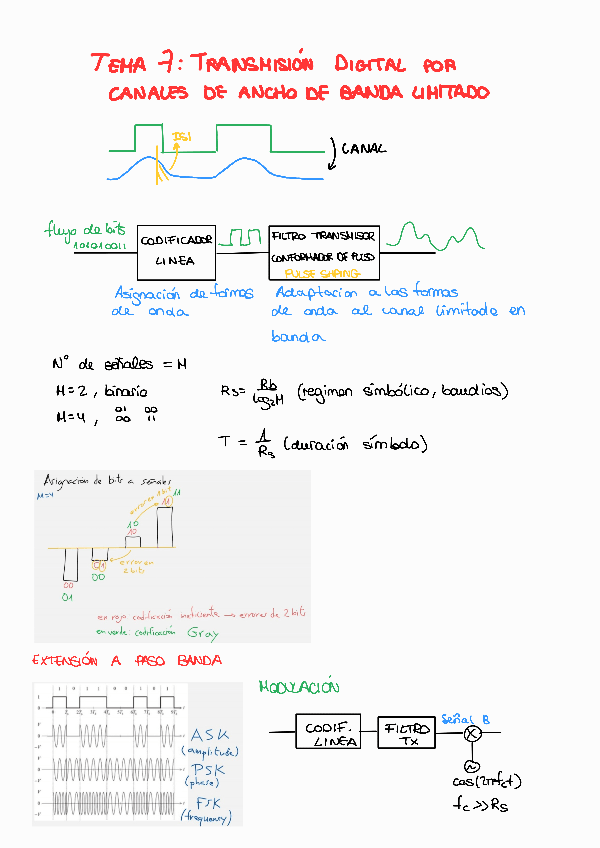 TEMA 7: TRANSMISIÓN DIGITAL POR
CANALES DE ANCHO DE BANDA LIMITADO
ISI
CANAL
flujo de bits
101010011
CODIFICADOR
LINEA
FILTRO TRANSMISOR
CONFORMADOR DE PULSO
PULSE SHAPING
Asignación de formas
de onda
Adaptacion a las formas
de onda al canal limitado en
banda
Nº de señales = M
M=2, binario
M=4, 01 00
00 11
Rs= Rb/log2M (regimen simbólico, baudios)
T = 1/Rs (duración símbolo)
Asignación de bits a señales
M=4
error en 1 bit
11
11
10
10
error en
2 bits
01
00
00
01
en rojo codificación ineficiente → errores de 2 bit
en verde: codificación Gray
EXTENSIÓN A PASO BANDA
ASK
(amplitude)
PSK
(phase)
FSK
(frequency)
MODULACIÓN
CODIF.
LINEA
FILTRO
TX
Señal B
cos(2πfct)
fc >> Rs